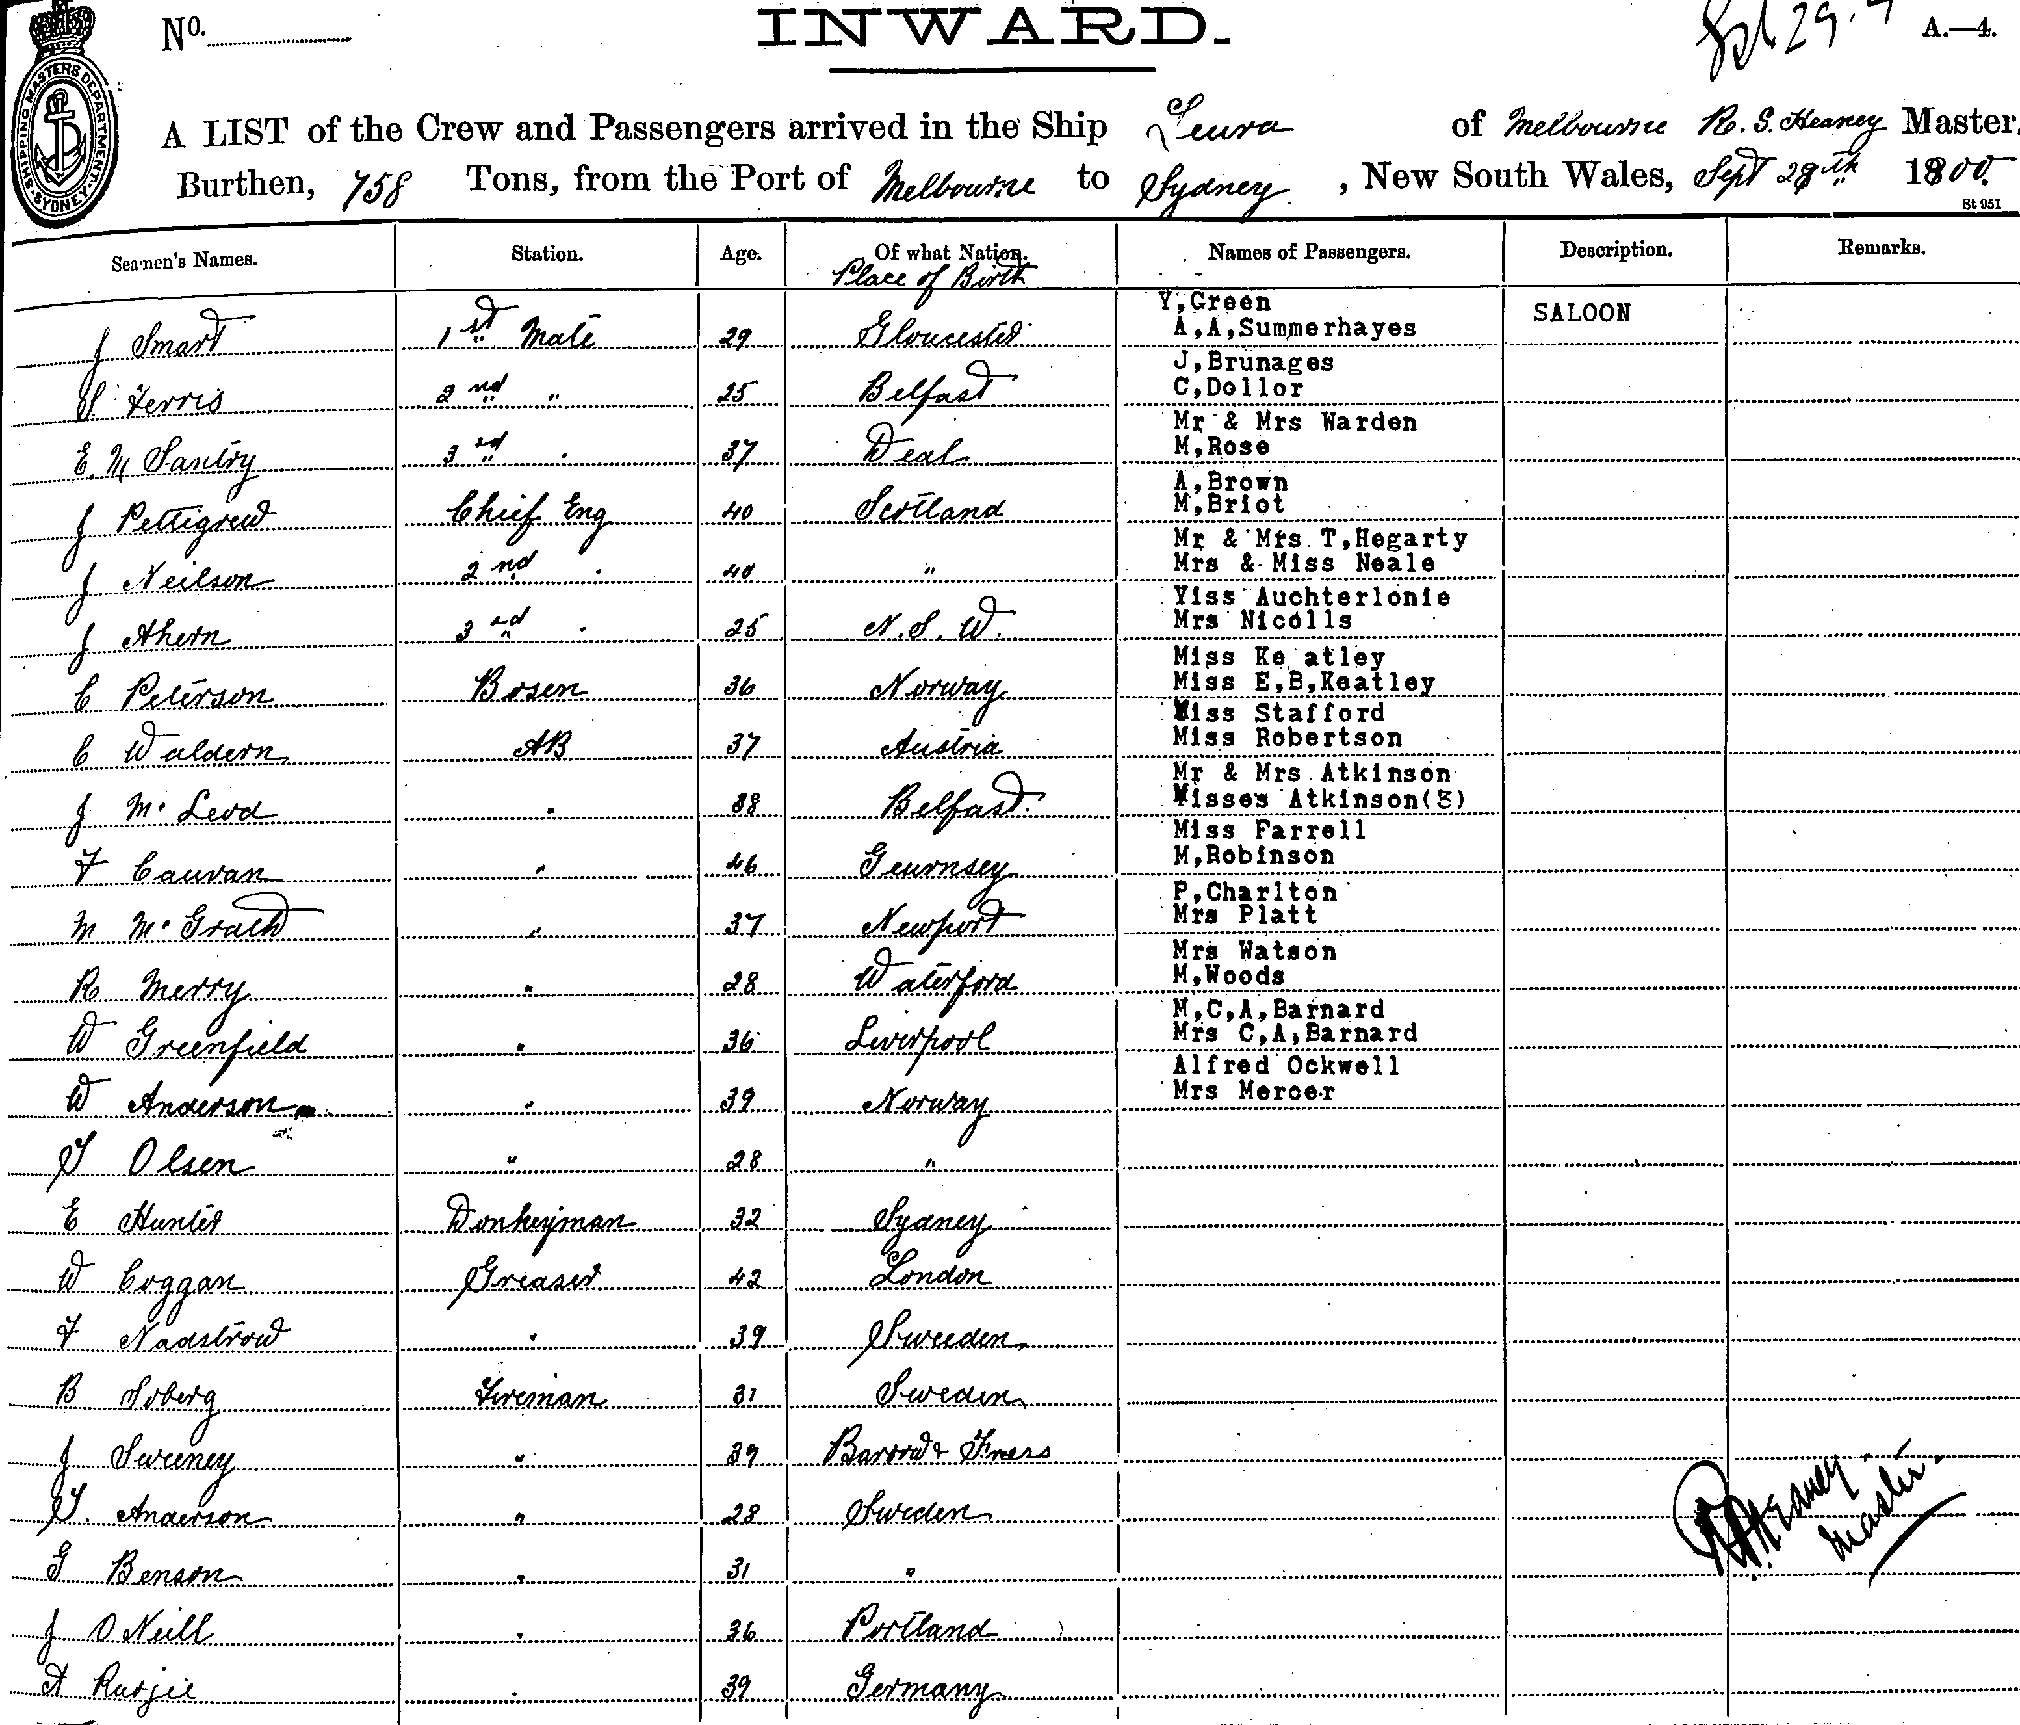 No.
INWARD.
A.—4.
SHIPPING MASTERS DEPARTMENT. SYDNEY.
A LIST of the Crew and Passengers arrived in the Ship Leura of Melbourne R. S. Heaney Master,
Burthen, 758 Tons, from the Port of Melbourne to Sydney, New South Wales, Sept 29th 1900.
St 951
Seamen's Names. Station. Age. Of what Nation. Names of Passengers. Description. Remarks.
Place of Birth
Y,Green SALOON
J Smart 1st Mate 29 Gloucester A,A,Summerhayes
J,Brunages
S Ferris 2nd " 25 Belfast C,Dollor
Mr & Mrs Warden
E. M Santry 3rd " 37 Deal M,Rose
A,Brown
J Pettigrew Chief Eng 40 Scotland M,Briot
Mr & Mrs T,Hegarty
J Neilson 2nd " 40 " Mrs & Miss Neale
Yiss Auchterlonie
J Ahern 3rd " 25 N. S. W. Mrs Nicolls
Miss Ke atley
C Peterson Bosen 36 Norway Miss E,B,Keatley
Miss Stafford
C Waldern AB 37 Austria Miss Robertson
Mr & Mrs Atkinson
J McLeod " 38 Belfast. Misses Atkinson(3)
Miss Farrell
F Cauvan " 46 Geurnsey M,Robinson
P,Charlton
M McGrath " 37 Newport Mrs Platt
Mrs Watson
R Merry " 28 Waterford M,Woods
M,C,A,Barnard
W Greenfield " 36 Liverpool Mrs C,A,Barnard
Alfred Ockwell
W Anderson " 39 Norway Mrs Mercer
T Olsen " 28 "
E Hunter Donkeyman 32 Sydney
W Coggan Greaser 42 London
F Nadstrow " 39 Sweeden
B Soberg Fireman 31 Sweden
J Sweeney " 39 Barrow & Fness
T. Anderson " 28 Sweden
G Benson " 31 "
J O Neill " 36 Portland
A " 39 Germany
R S Heaney
Master